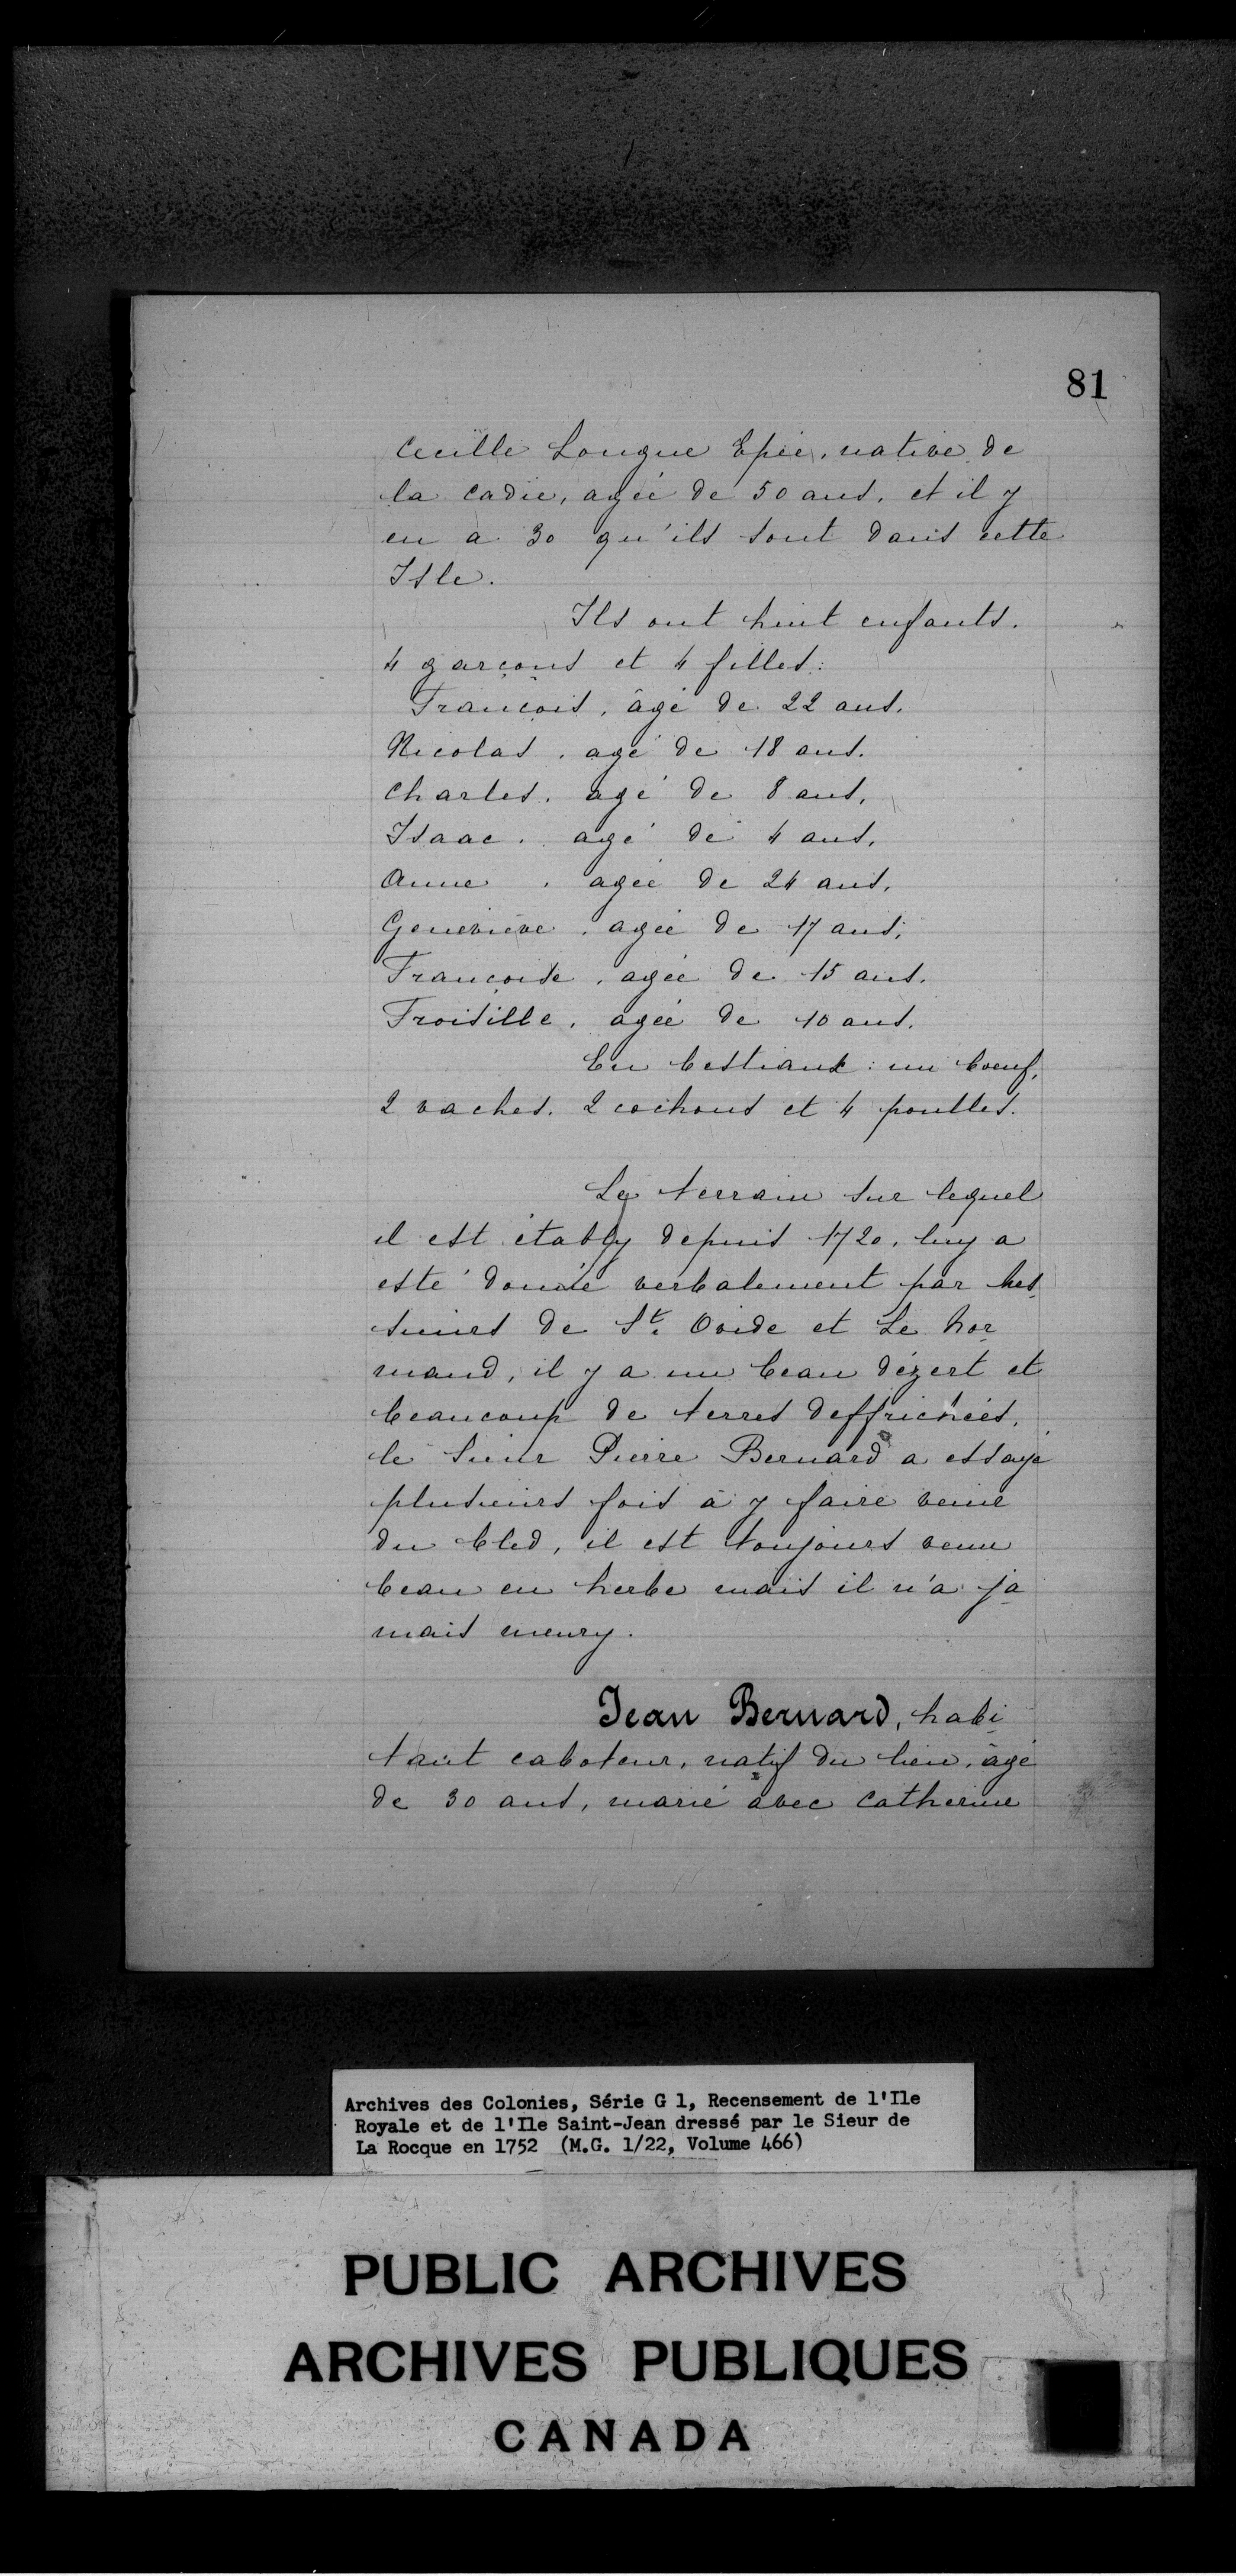 81
Cecille Longue Epée, native de
la Cadie, agée de 50 ans, et il y
en a 30 qu'ils sont dans cette
Isle.
Ils ont huit enfants.
4 garçons et 4 filles:
François, âgé de 22 ans,
Nicolas, agé de 18 ans.
Charles, agé de 8 ans,
Isaac, agé de 4 ans,
Anne, agée de 24 ans,
Geneviève, agée de 17 ans,
Françoise, agée de 15 ans.
Froisille, agée de 10 ans.
En bestiaux: un boeuf,
2 vaches, 2 cochons et 4 poulles.
Le terrain sur lequel
il est étably depuis 1720, luy a
esté donné verbalement par les
sieurs de St. Ovide et Le Nor
mand, il y a un beau dézert et
beaucoup de terres deffrichées,
le sieur Pierre Bernard a essayé
plusieurs fois à y faire venir
du bled, il est toujours venu
beau en herbe mais il n'a ja
mais meury.
Jean Bernard, habi
tant caboteur, natif du lieu, âgé
de 30 ans, marié avec Catherine
Archives des Colonies, Série G 1, Recensement de l'Ile
Royale et de l'Ile Saint-Jean dressé par le Sieur de
La Rocque en 1752 (M.G. 1/22, Volume 466)
PUBLIC ARCHIVES
ARCHIVES PUBLIQUES
CANADA